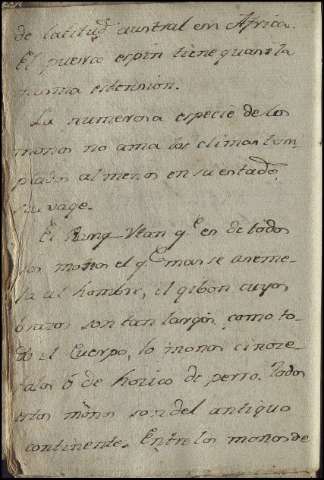 de latitud austral em Africa.
El puerco espin tiene quasi la
misma estension.
La numerosa especie de los
monos no ama los climas tem-
plados al menos en su estado
salvage.
El Rang Utan q.e es de todos
los monos el q.e mas se aseme-
ja al hombre, el gibon cuyos
brazos son tan largos como to-
do el Cuerpo, los monos cinoce-
falos ó de hocico de perro. Todos
estos monos son del antiguo
continente. Entre los monos de